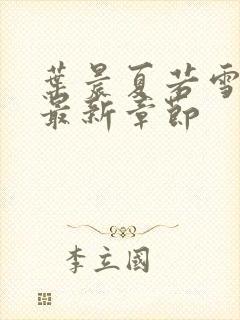 葉晨夏若雪
最新章節
李立國